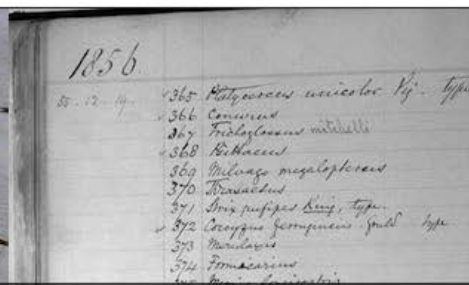 1856.
55 . 12 . 19. 365 Platycercus unicolor Vig. type
366 Conurus
367 Trichoglossus mitchelli
368
369 Milvago megalopterus
370 Thrasaetus
371 Strix rufipes King, type.
372 Coccyzus ferrugineus. Gould type
373
374 Formicarius